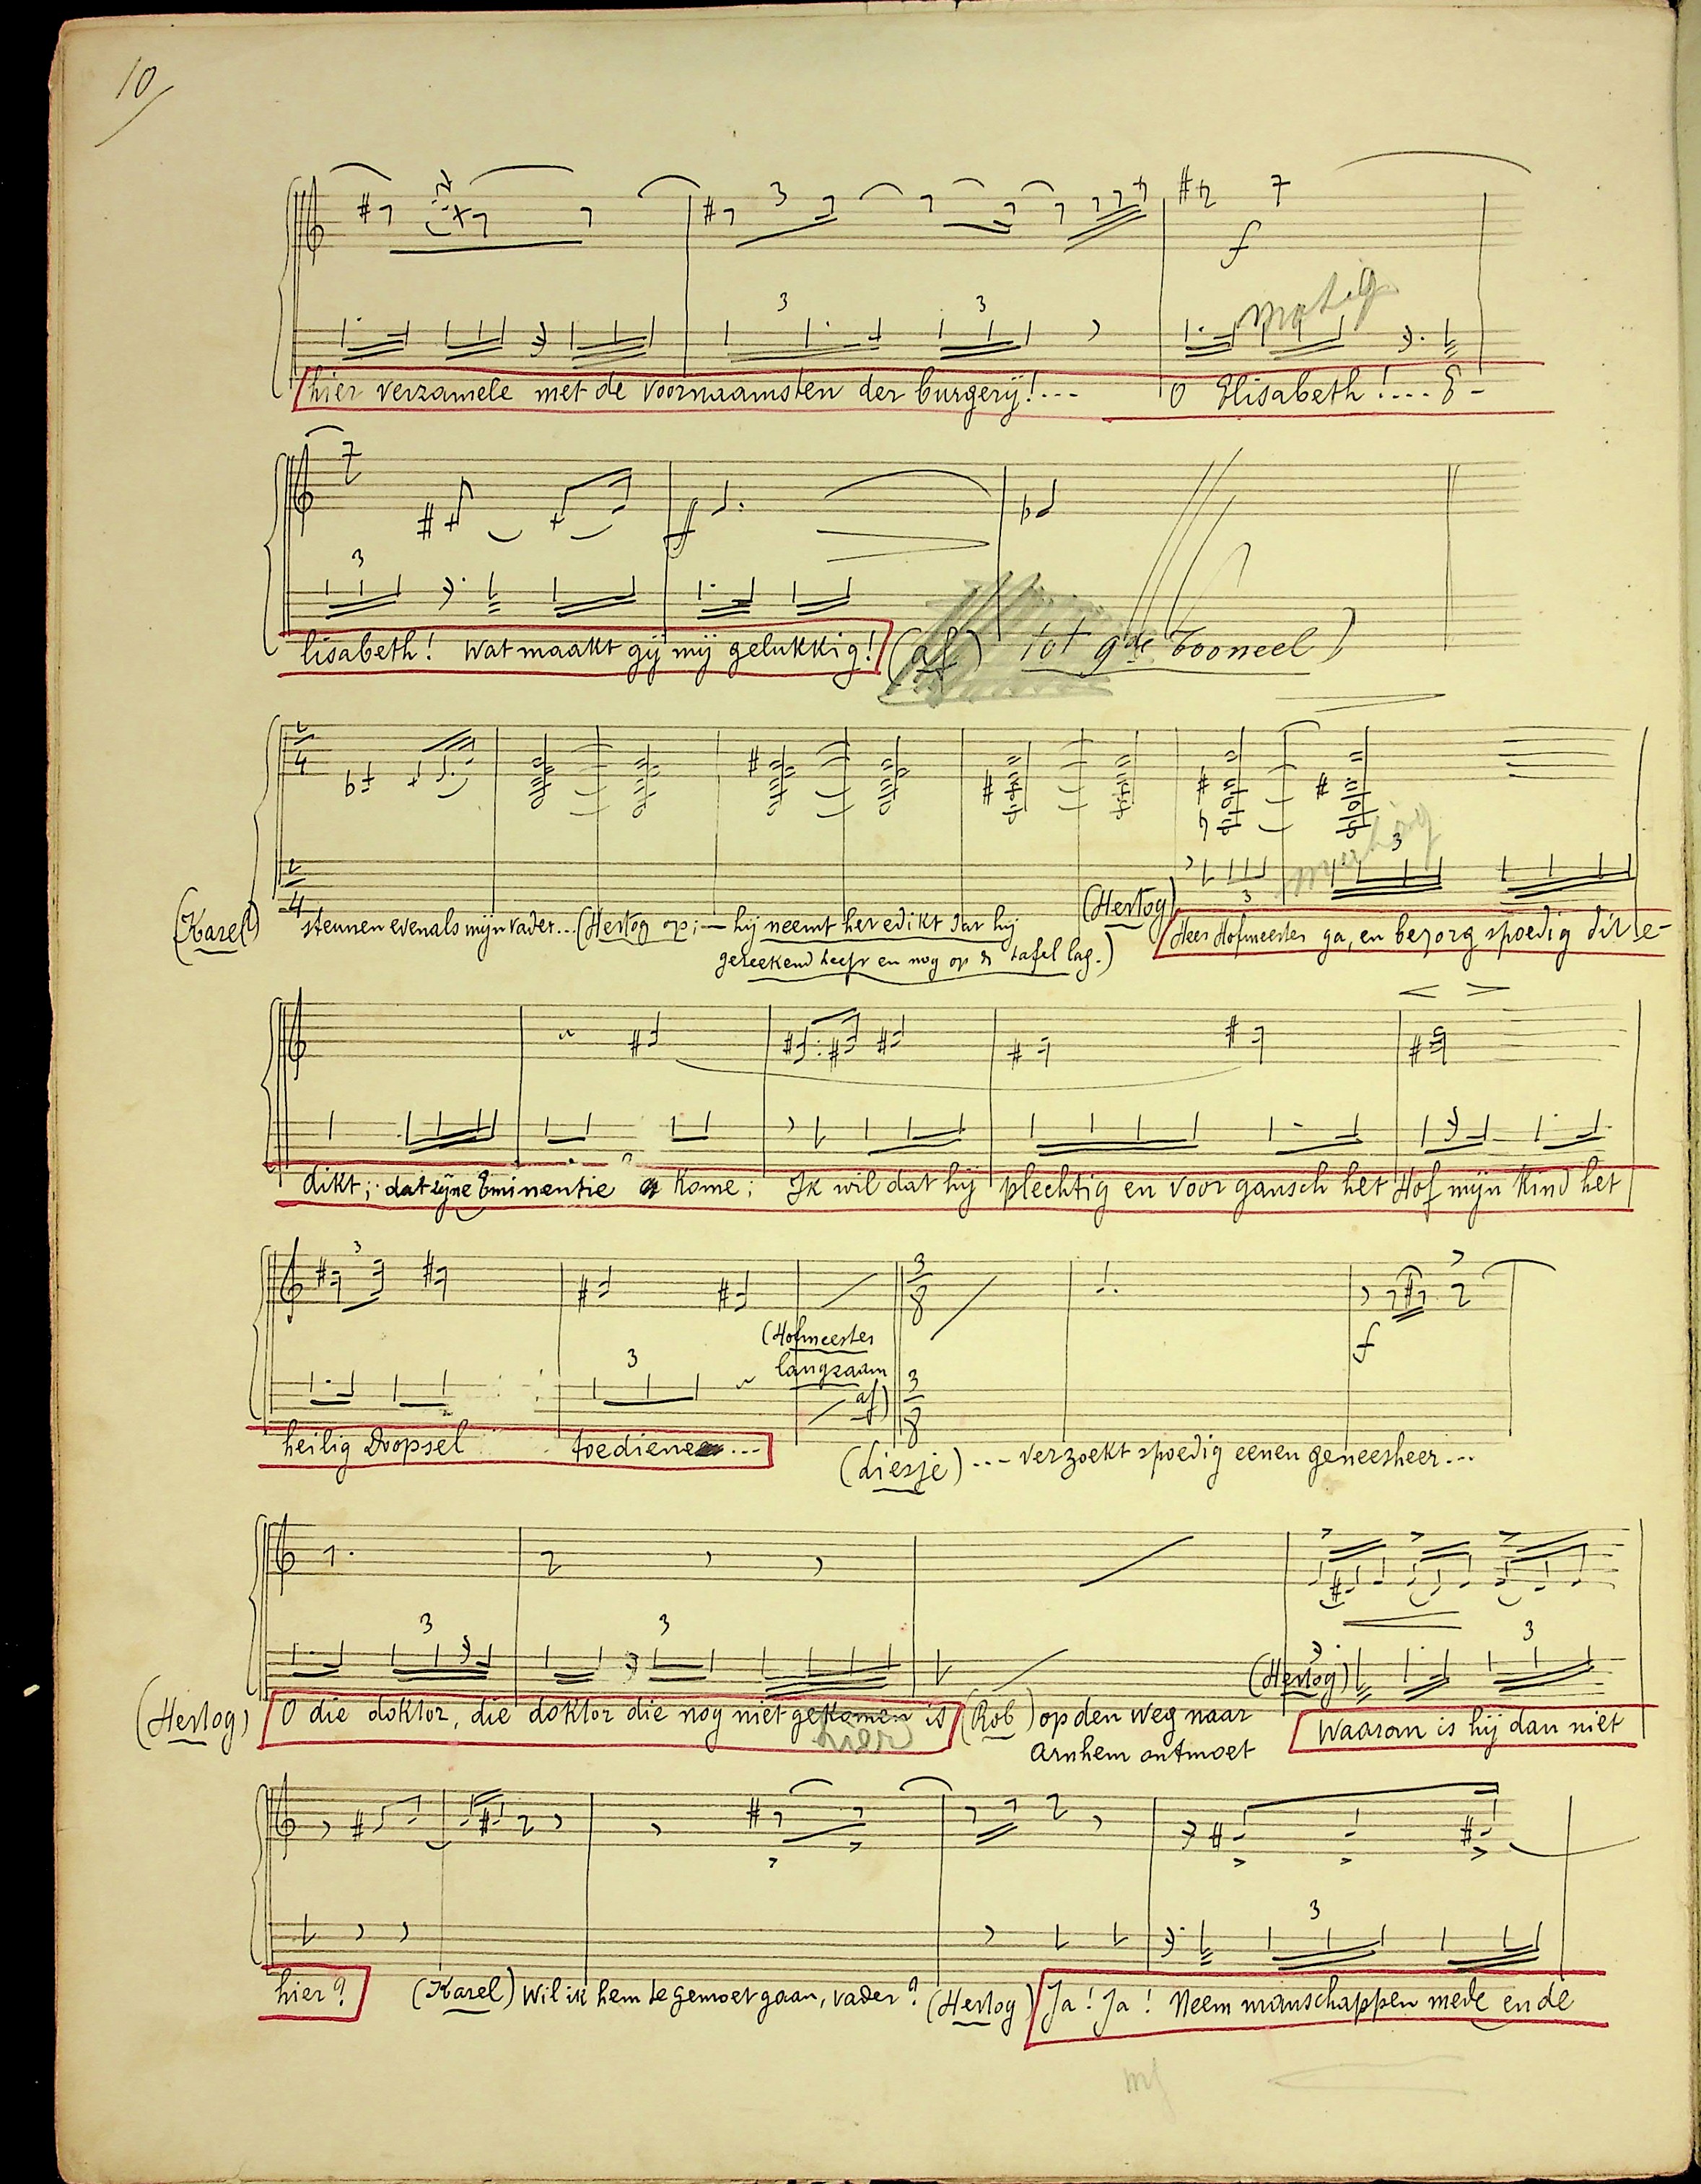 10
matig
hier verzamele met de voornaamsten der burgerij!... O Elisabeth!.... E-
lisabeth! Wat maakt gij mij gelukkig! (af) tot 9de Tooneel)
(Karel) steunen evenals mijn vader... (Hertog op; — hij neemt het edikt dat hij
geteekend heeft en nog op de tafel lag.)
(Hertog) Heer Hofmeester ga, en bezorg spoedig dit e-
dikt; dat zijne Eminentie kome; Ik wil dat hij plechtig en voor gansch het Hof mijn kind het
(Hofmeester
langzaam
af)
heilig Doopsel toediene ...
(Liesje) ... verzoekt spoedig eenen geneesheer...
(Hertog) O die doktor, die doktor die nog niet gekomen is (Rob) op den weg naar
hier
Arnhem ontmoet
(Hertog) Waarom is hij dan niet
hier? (Karel) Wil ik hem te gemoet gaan, vader? (Hertog) Ja! Ja! Neem manschappen mede en de
mf